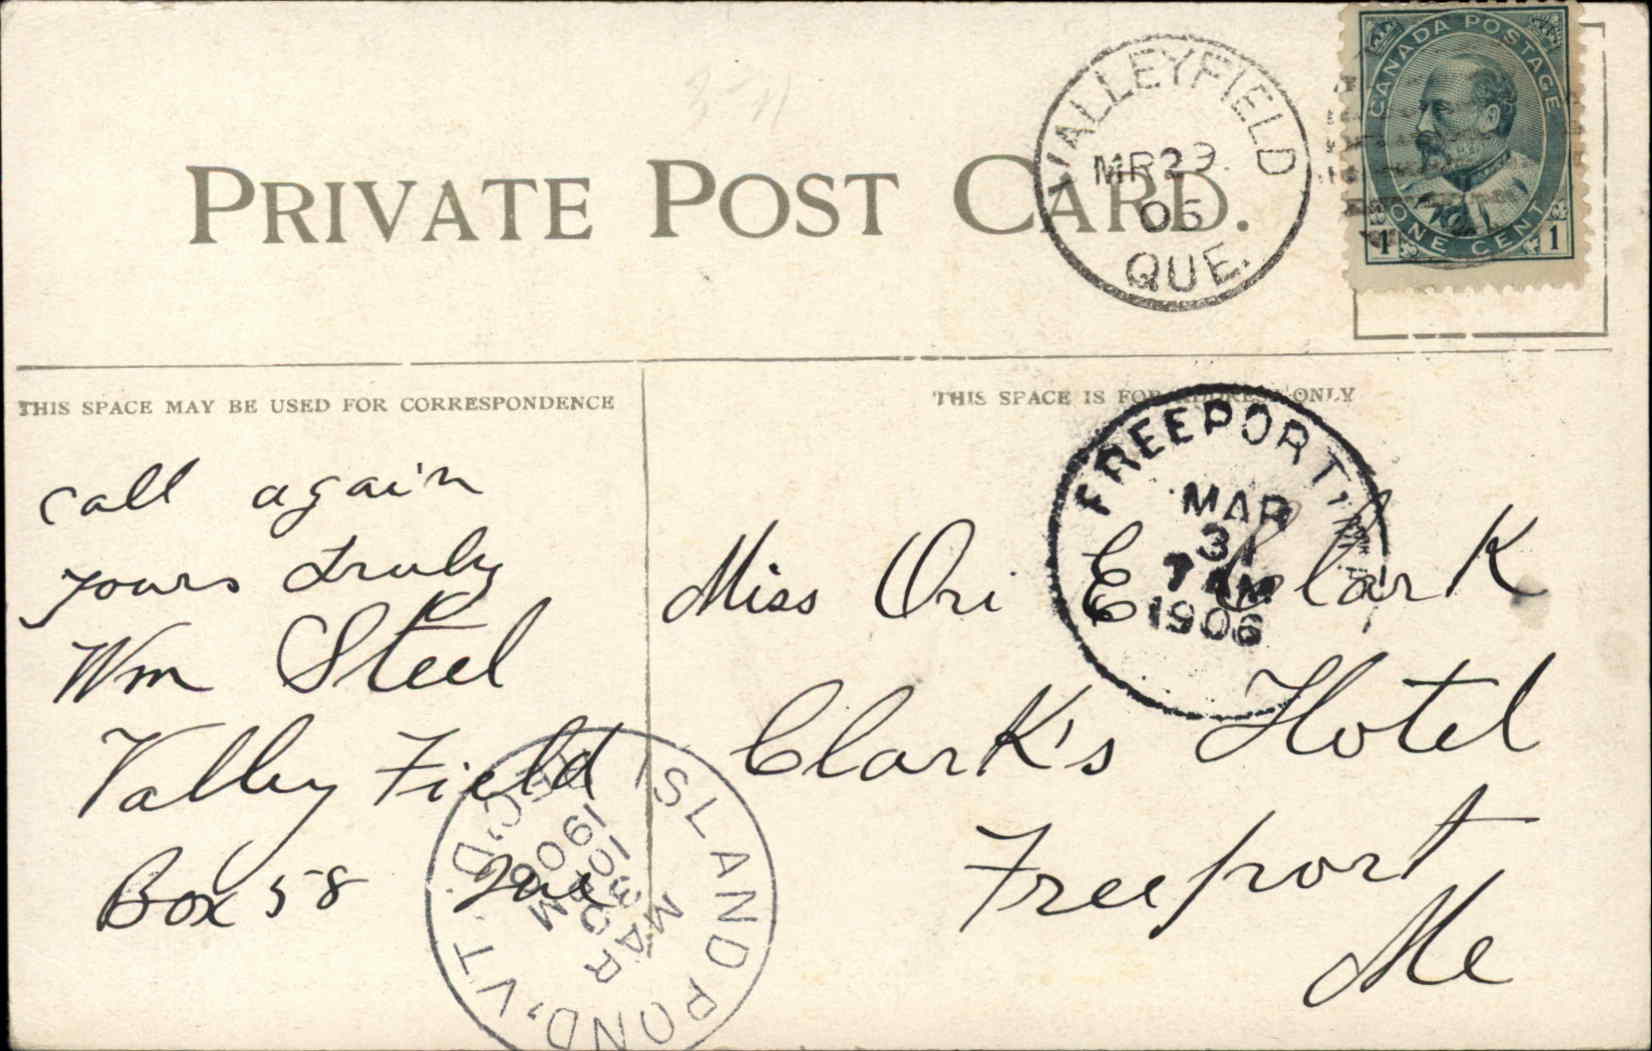 PRIVATE POST CARD.
VALLEYFIELD
MR 29
06
QUE.
CANADA POSTAGE
ONE CENT
1 1
THIS SPACE MAY BE USED FOR CORRESPONDENCE
THIS SPACE IS FOR ADDRESS ONLY
call again
yours truly
Wm Steel
Valley Field
Box 58 Que
FREEPORT,
MAR
31
7 AM
1906
Miss Ori E Clark
Clark's Hotel
Freeport
Me
ISLAND POND, VT.
REC'D.
MAR
30
10 PM
1906